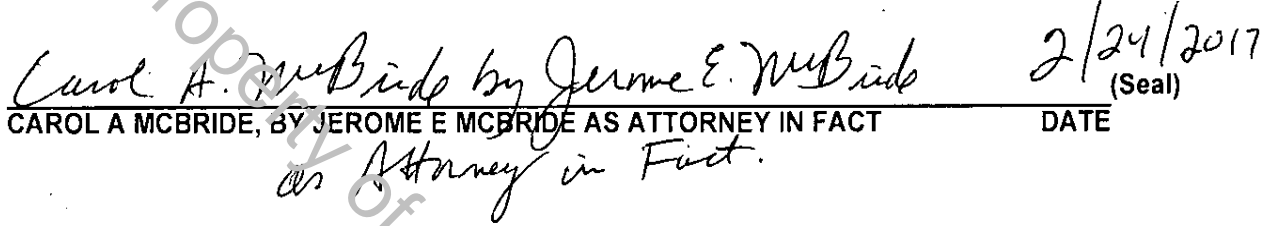 Carol A. McBride by Jerome E. McBride 2/24/2017
(Seal)
CAROL A MCBRIDE, BY JEROME E MCBRIDE AS ATTORNEY IN FACT DATE
as Attorney in Fact.
Property of